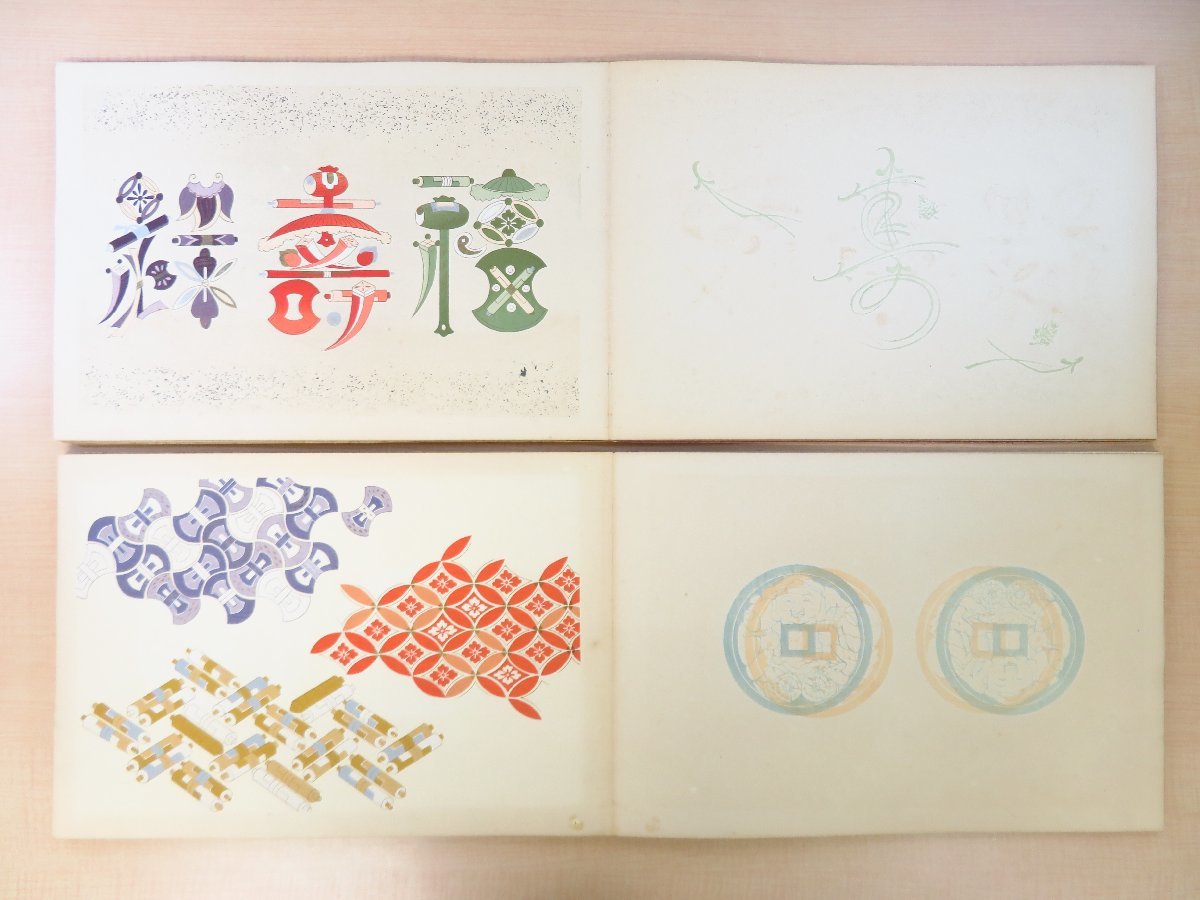 福壽祿
壽